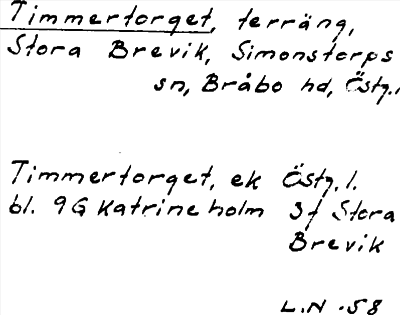 Timmertorget, terräng,
Stora Brevik, Simonstorps
sn, Bråbo hd, Östg.l
Timmertorget, ek Östg. l.
bl. 9G Katrineholm 3f Stora
Brevik
L.N -58